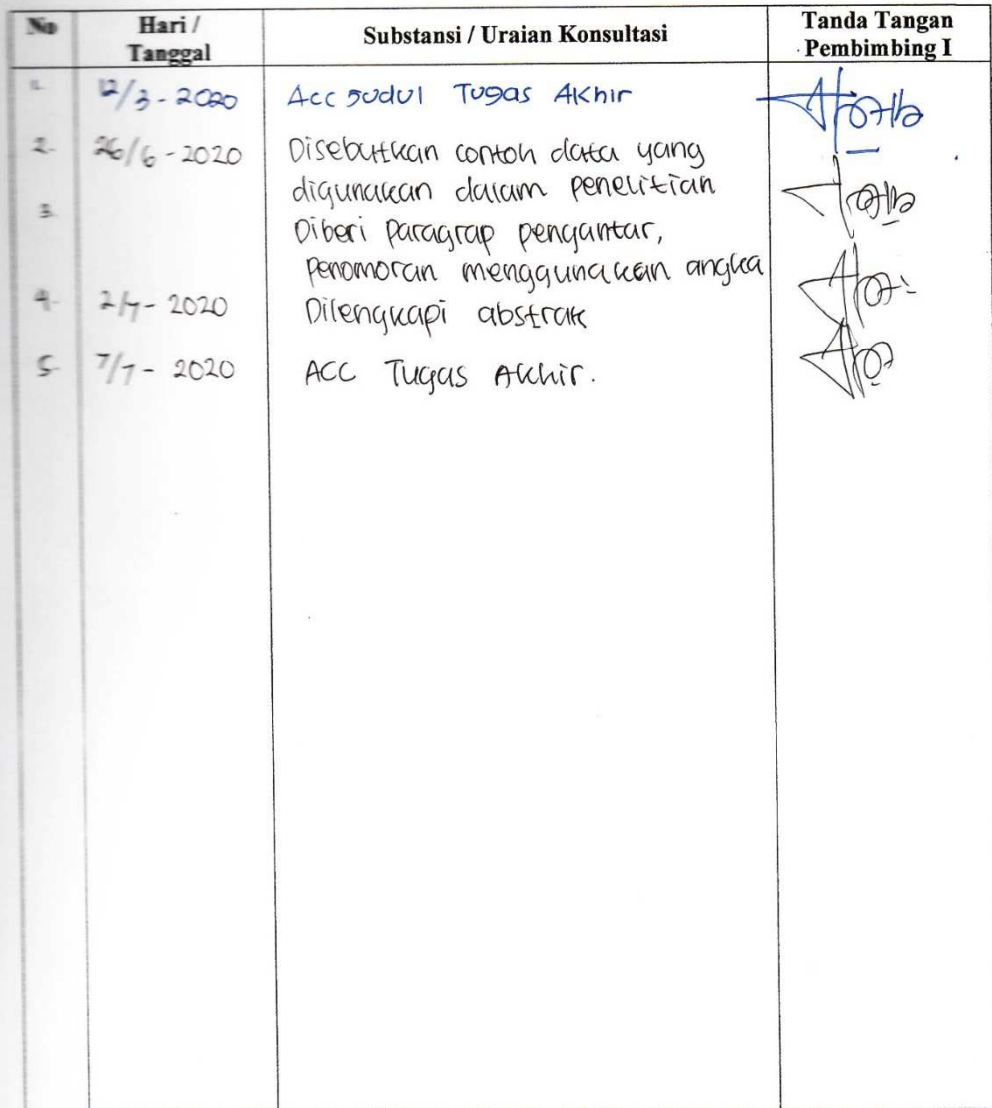 No Hari / Tanggal Substansi / Uraian Konsultasi Tanda Tangan Pembimbing I
1. 12/3 - 2020 Acc Judul Tugas Akhir
2. 26/6 - 2020 Disebutkan contoh data yang
digunakan dalam penelitian
3. Diberi Paragrap pengantar,
penomoran menggunakan angka
4. 2/7 - 2020 Dilengkapi abstrak
5. 7/7 - 2020 ACC Tugas Akhir.